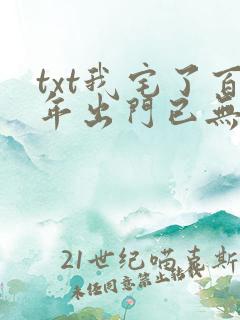 txt我宅了百
年出門已無
21世纪喵克斯
未经同意禁止转载